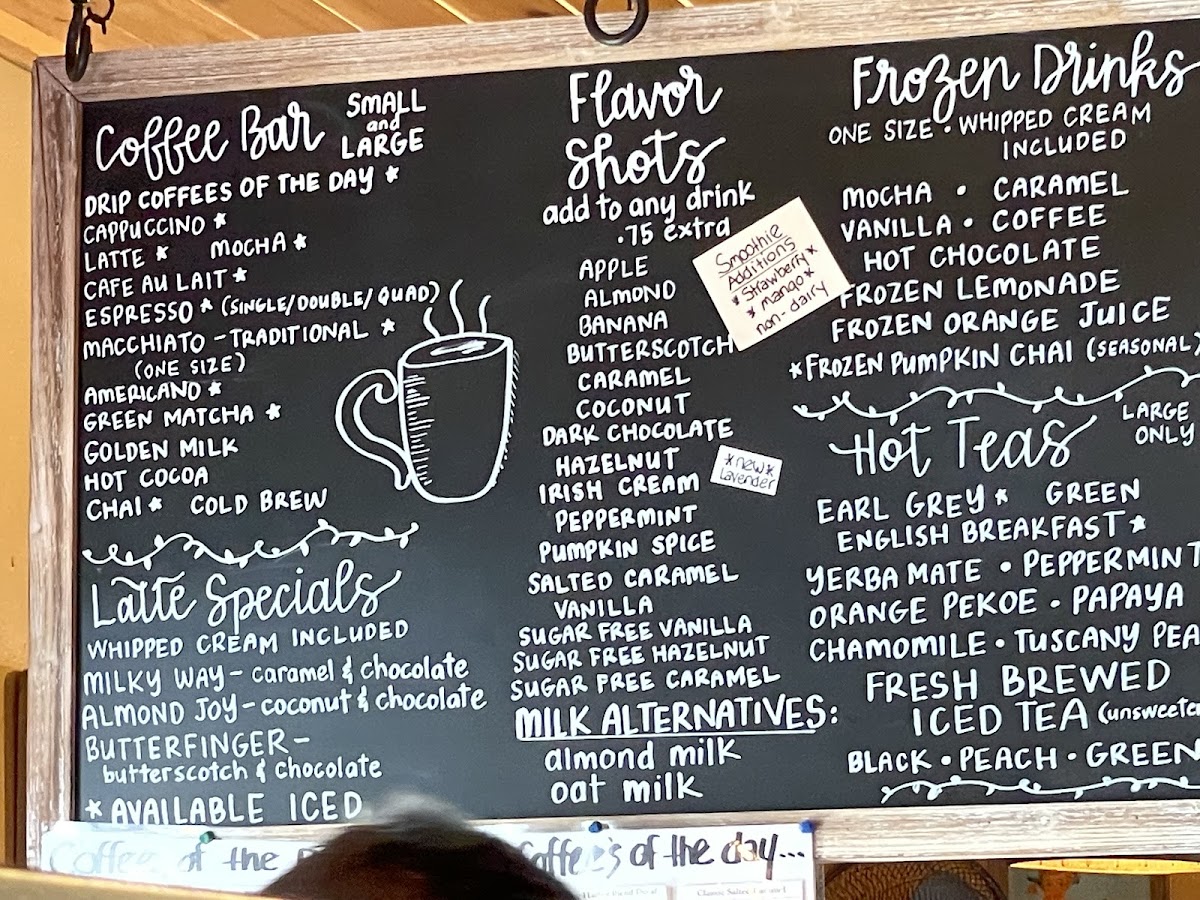 Coffee Bar SMALL and LARGE
DRIP COFFEES OF THE DAY *
CAPPUCCINO *
LATTE * MOCHA *
CAFE AU LAIT *
ESPRESSO * (SINGLE/DOUBLE/QUAD)
MACCHIATO - TRADITIONAL *
(ONE SIZE)
AMERICANO *
GREEN MATCHA *
GOLDEN MILK
HOT COCOA
CHAI * COLD BREW
Latte Specials
WHIPPED CREAM INCLUDED
MILKY WAY - caramel & chocolate
ALMOND JOY - coconut & chocolate
BUTTERFINGER -
butterscotch & chocolate
* AVAILABLE ICED
Flavor
Shots
add to any drink
.75 extra
APPLE
ALMOND
BANANA
BUTTERSCOTCH
CARAMEL
COCONUT
DARK CHOCOLATE
HAZELNUT
IRISH CREAM
PEPPERMINT
PUMPKIN SPICE
SALTED CARAMEL
VANILLA
SUGAR FREE VANILLA
SUGAR FREE HAZELNUT
SUGAR FREE CARAMEL
MILK ALTERNATIVES:
almond milk
oat milk
Smoothie
Additions
*Strawberry*
*mango*
non-dairy
*new*
lavender
Frozen Drinks
ONE SIZE • WHIPPED CREAM
INCLUDED
MOCHA • CARAMEL
VANILLA • COFFEE
HOT CHOCOLATE
FROZEN LEMONADE
FROZEN ORANGE JUICE
*FROZEN PUMPKIN CHAI (SEASONAL)
Hot Teas LARGE ONLY
EARL GREY * GREEN
ENGLISH BREAKFAST *
YERBA MATE • PEPPERMINT
ORANGE PEKOE • PAPAYA
CHAMOMILE • TUSCANY PEA
FRESH BREWED
ICED TEA (unsweete
BLACK • PEACH • GREEN
of the
of the day...